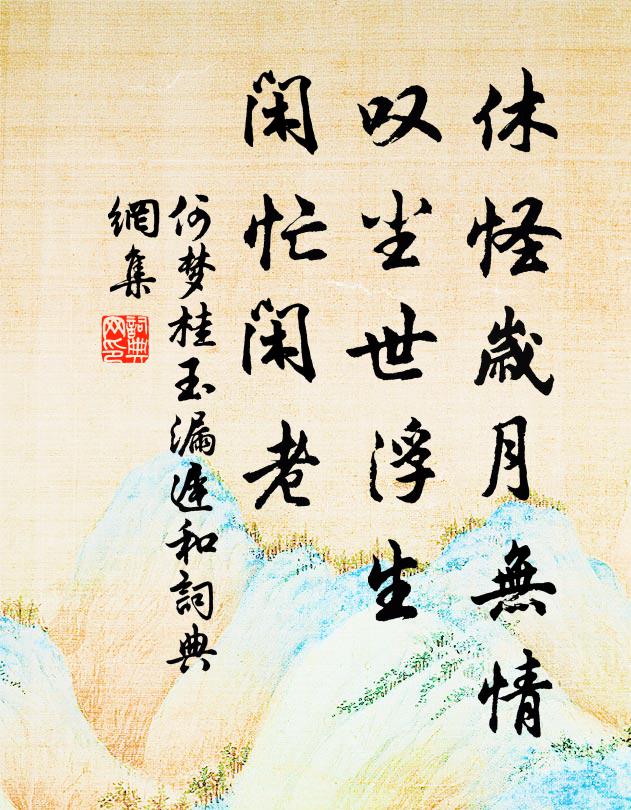 休怪歲月無情
叹尘世浮生
闲忙闲老
何梦桂玉漏遲和詞典
網集
詞典
网印